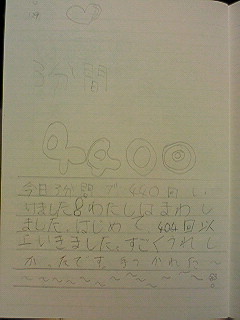 3分間
今日3分間で440回い
けました8わたしはまわし
ました。はじめて、404回以
上いきました。すごくうれし
かったです。